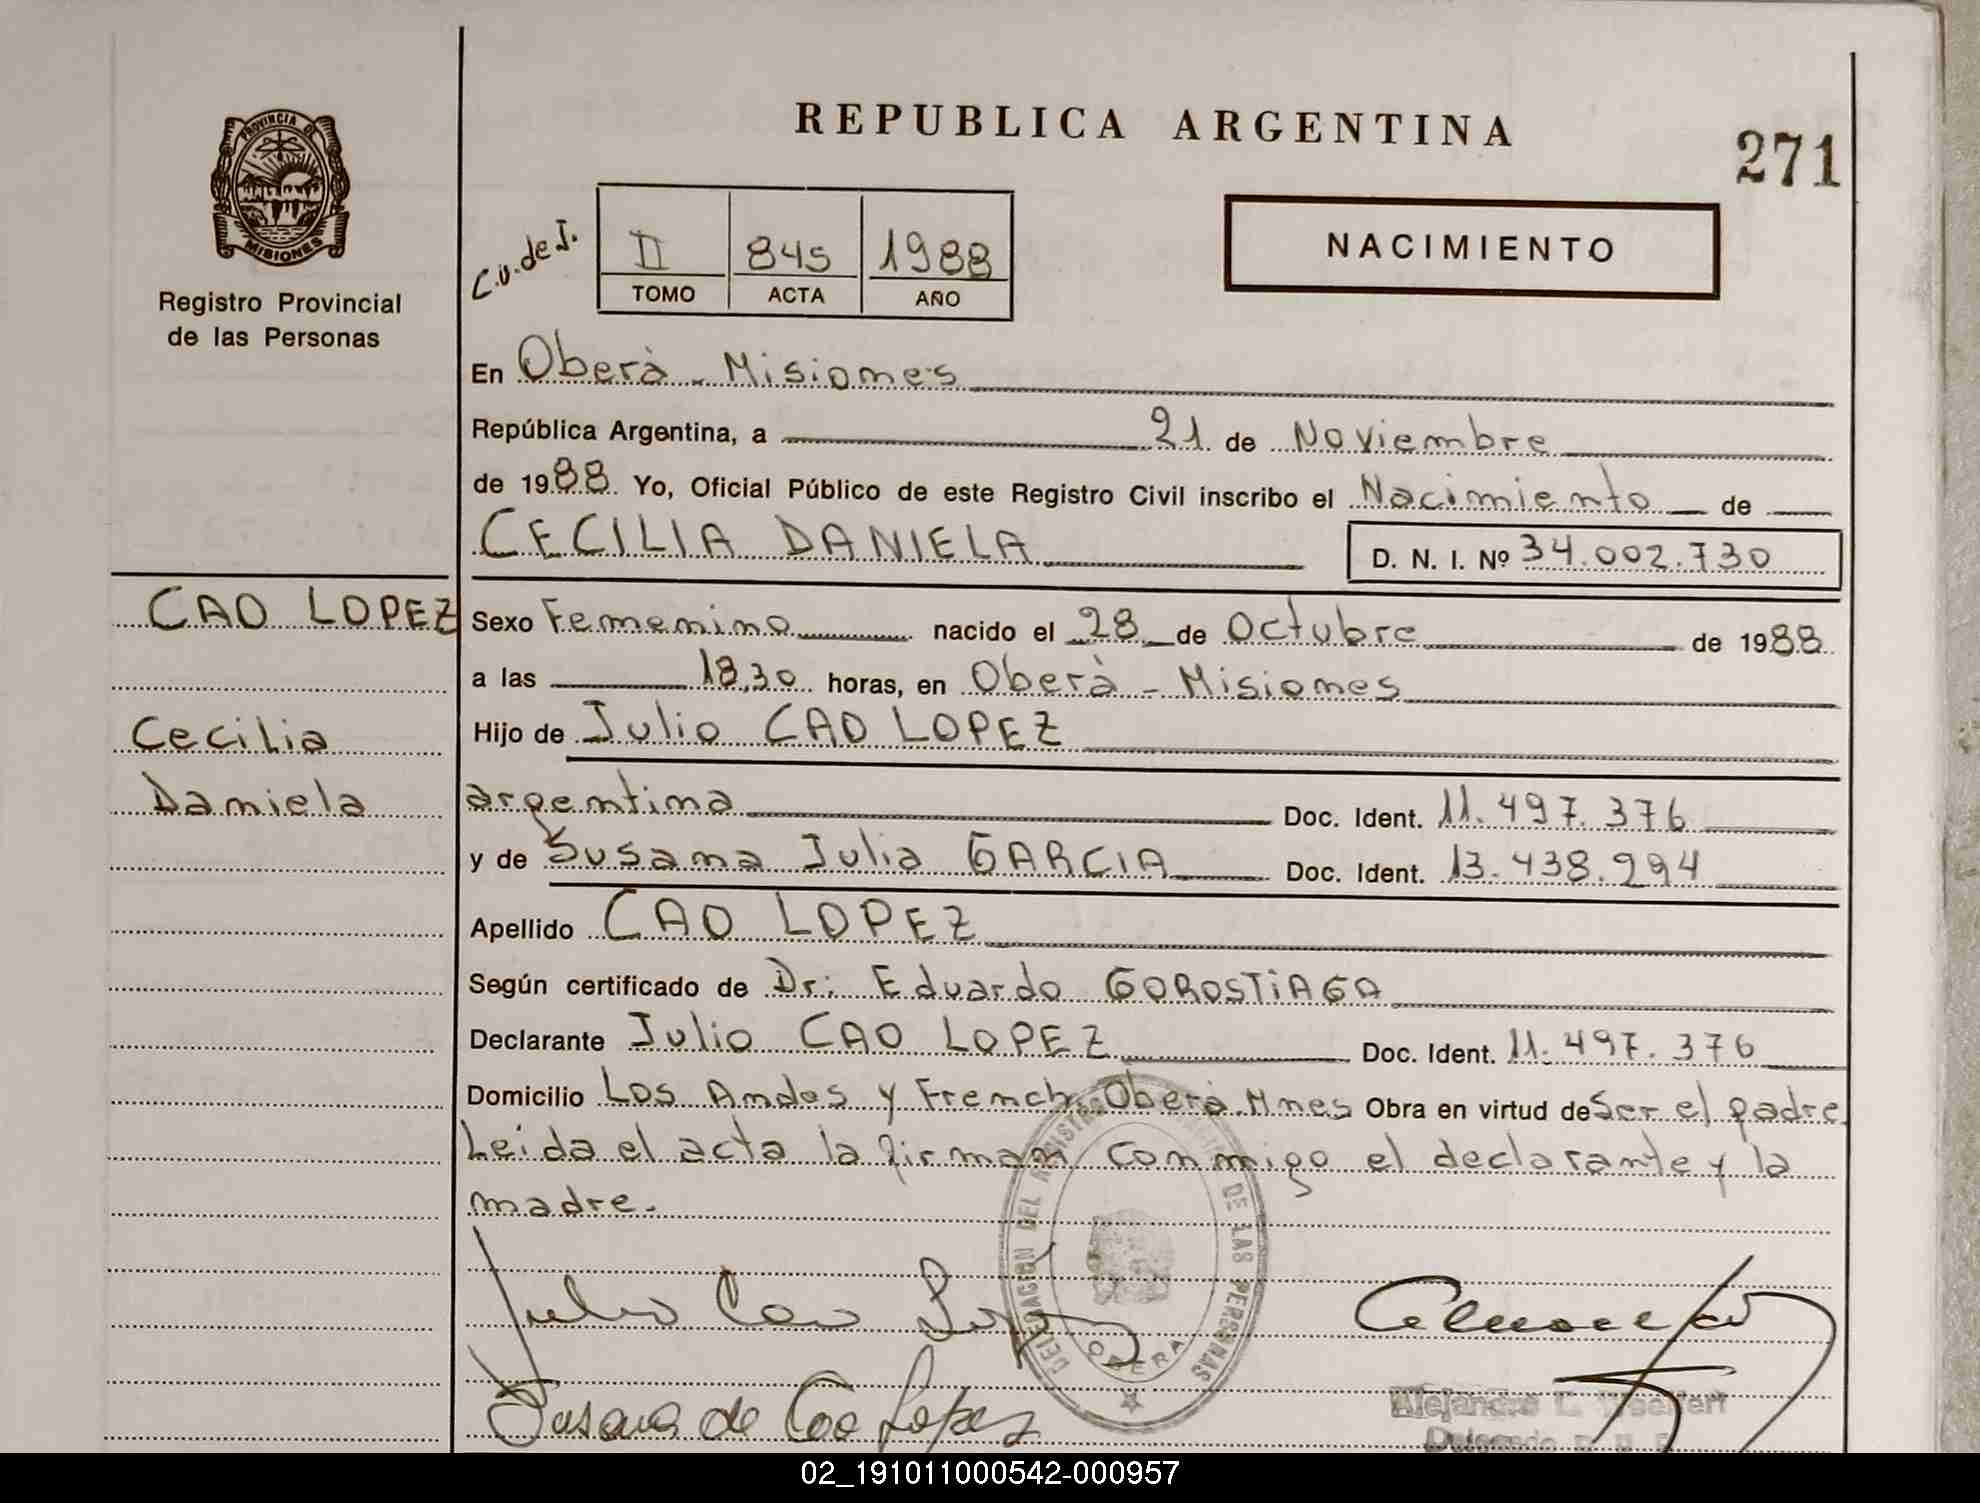 REPUBLICA ARGENTINA
271
PROVINCIA DE
MISIONES
Registro Provincial
de las Personas
C.U. de I.
II 845 1988
TOMO ACTA AÑO
NACIMIENTO
En Oberà - Misiones
República Argentina, a 21 de Noviembre
de 1988 Yo, Oficial Público de este Registro Civil inscribo el Nacimiento de
CECILIA DANIELA
D. N. I. Nº 34.002.730
CAO LOPEZ
Cecilia
Daniela
Sexo Femenino nacido el 28 de Octubre de 1988
a las 18,30 horas, en Oberà - Misiones
Hijo de Julio CAO LOPEZ
argentina Doc. Ident. 11.497.376
y de Susana Julia GARCIA Doc. Ident. 13.438.294
Apellido CAO LOPEZ
Según certificado de Dr. Eduardo GOROSTIAGA
Declarante Julio CAO LOPEZ Doc. Ident. 11.497.376
Domicilio Los Andes y French Oberà Mnes Obra en virtud de Ser el padre.
Leida el acta la firman conmigo el declarante y la
madre.
Julio Cao Lopez
DELEGACION DEL REGISTRO DE LAS PERSONAS
OBERA
Susana de Cao Lopez
Alejandro L.
Delegado
02_191011000542-000957